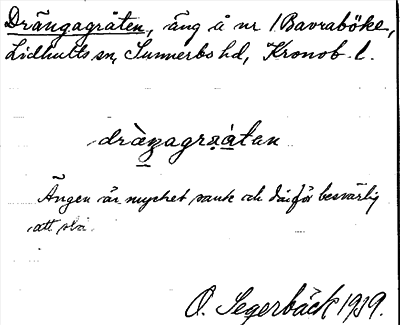 Drängagråten, äng å nr 1 Bavraböke,
Lidhults sn, Sunnerbo hd, Kronob. l.
dràŋagrååtan
Ängen är mycket sank och därför besvärlig
att slå.
O. Segerbäck 1919.